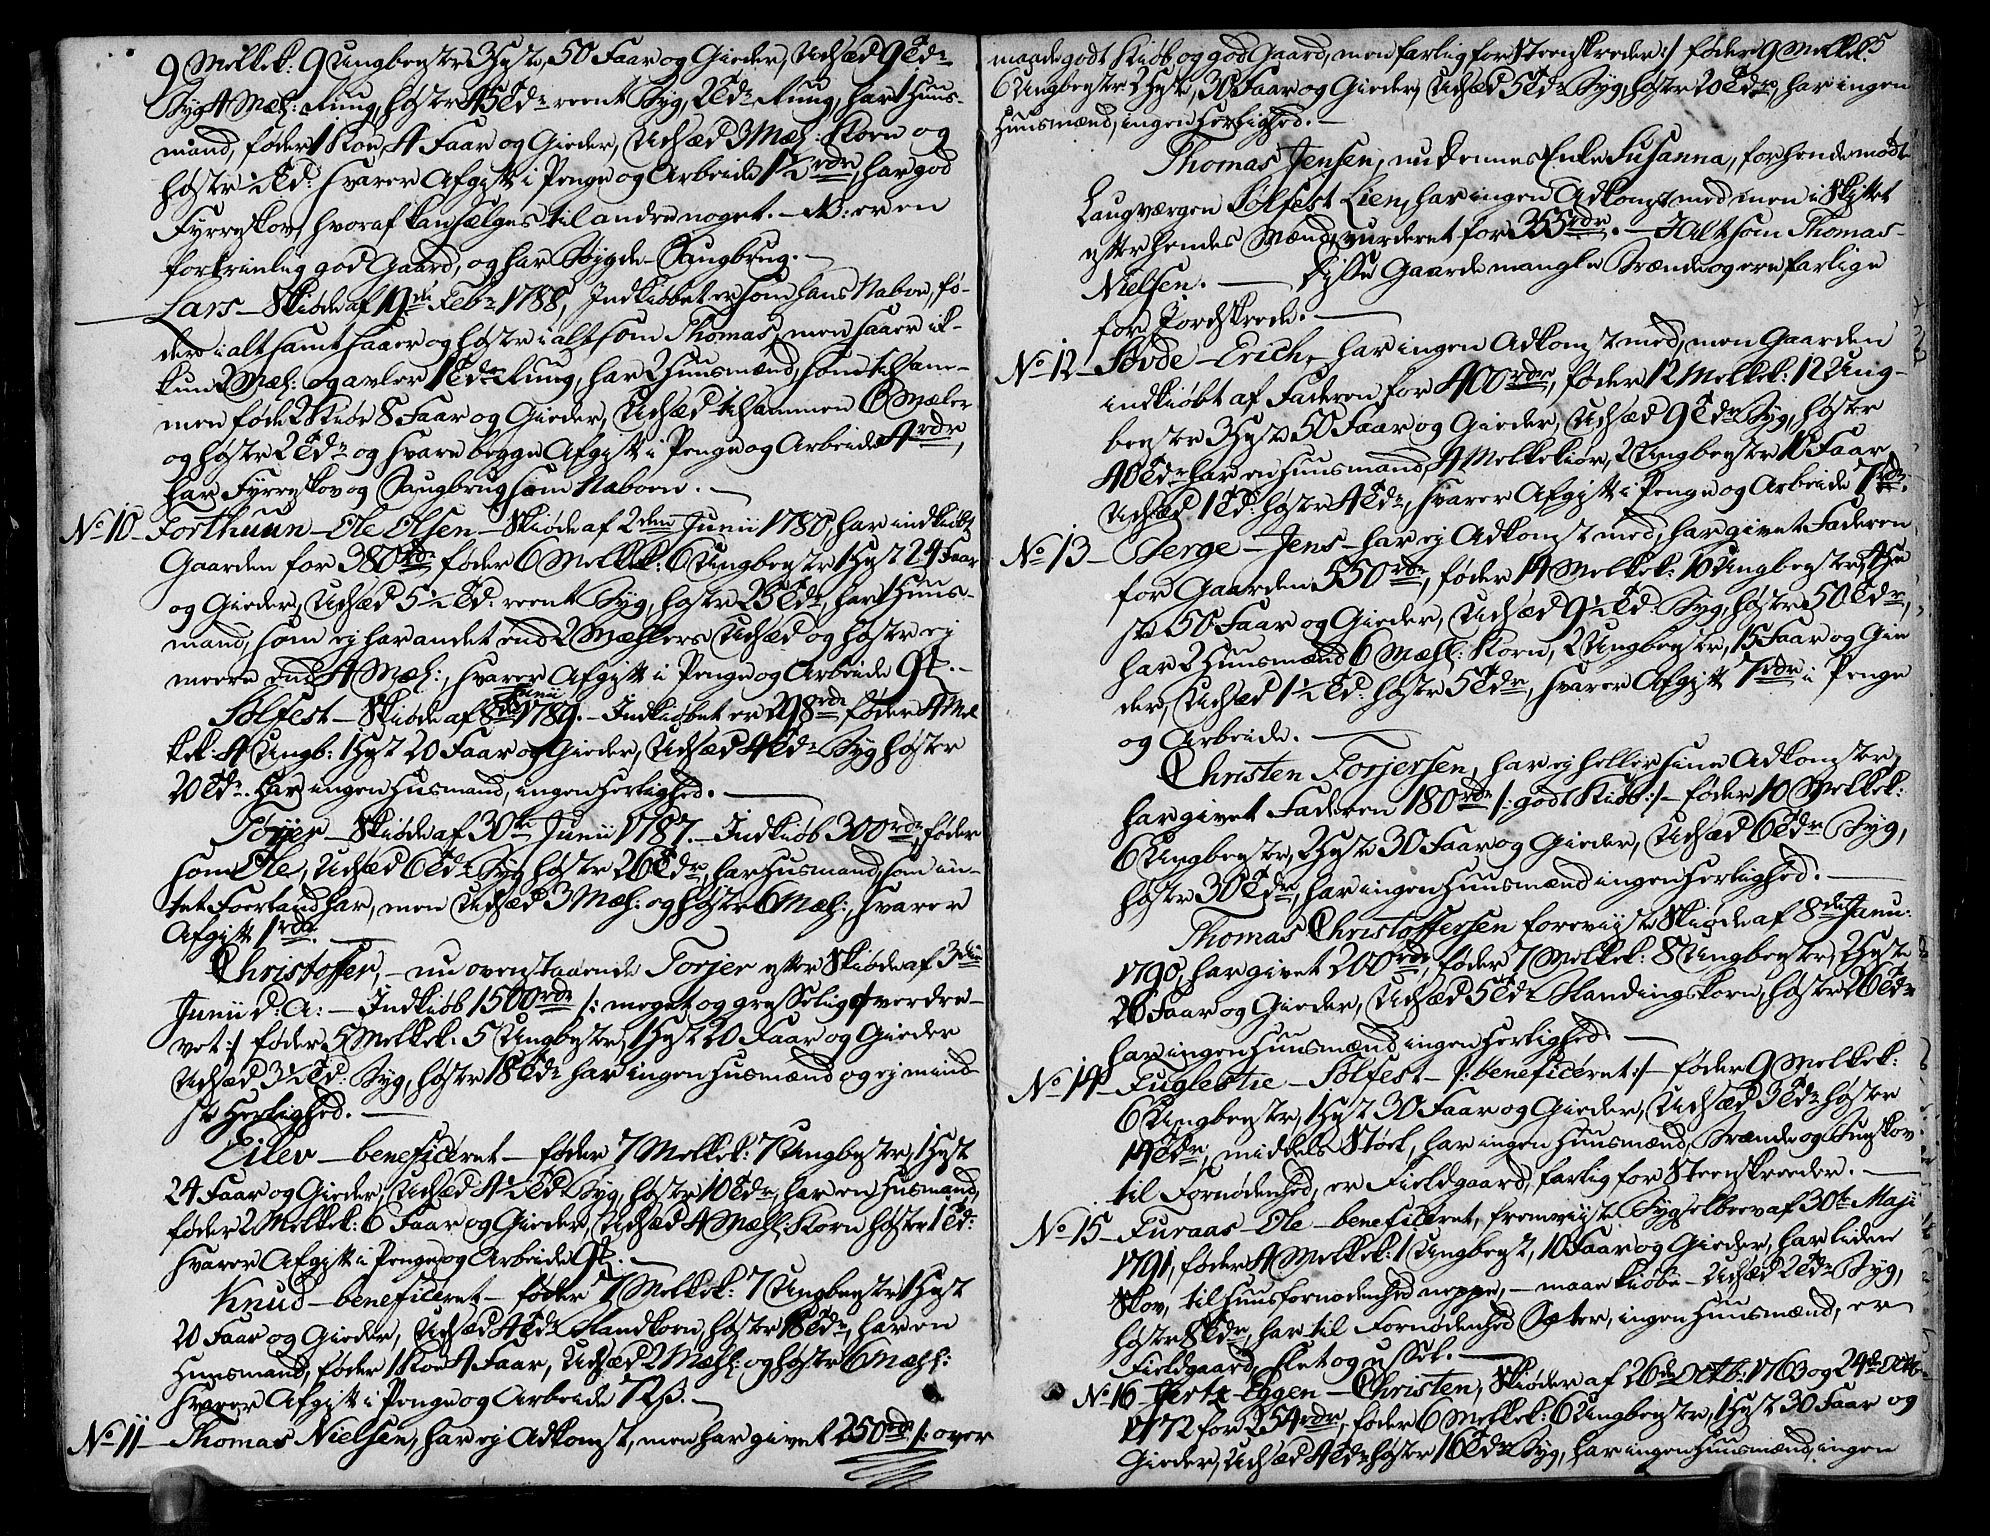 9 Melkek: 9 Ungbeyster 3 Hæste, 50 Faar og Gieder, Udsæd 9 Tdr
Byg 4 Mæl: Rug, høster 45 Tdr reent Byg, 2 Tdr Rug, har 1 Huus-
mand, føder 1 Koe, 4 Faar og Gieder, Udsæd 3 Mæl: Korn og
høster ½ Td: svarer Afgift i Penge og Arbeide 1½ rdr, har god
Fyrreskov, hvoraf kan sælges til andre noget. — NB: er en
fortrinlig god Gaard, og har Bøygde-Saugbrug. —
Lars — Skiøde af 19de Febr 1788, Indkiøbet er som hans Naboe, fø-
der i alt samt saaer og høster i alt som Thomas, men saaer ik-
kun 2 Mæl: og avler 1 Tdr Rug, har 2 Huusmænd, som tilsam-
men føde 2 Kiør 8 Faar og Gieder, Udsæd tilsammen 6 Mæler
og høste 2 Tdr og svare begge Afgift i Penge og Arbeide 4 rdr,
har Fyrreskov og Saugbrug som Naboen. —
No 10 — Forthuun — Ole Olsen — Skiøde af 2den Junii 1780, har indkiøbt
Gaarden for 380 rdr føder 6 Melkek: 6 Ungbeyster 1 Hæst 24 Faar
og Gieder, Udsæd 5½ Td: reent Byg, høster 25 Tdr, har 1 Huus-
mand, som ej har andet end 2 Mæhlers Udsæd og høster ej
meere end 4 Mæl:, svarer Afgift i Penge og Arbeide 9 t. —
Sølfest — Skiøde af 8de Junii 1789. — Indkiøbet er 298 rdr føder 4 Mel
kek: 4 Ungb: 1 Hæst 20 Faar og Gieder, Udsæd 4 Tdr Byg høster
20 Tdr. Har ingen Husmand, ingen Herlighed. —
Torjer — Skiøde af 30te Junii 1787. — Indkiøb 300 rdr, føder
som Ole, Udsæd 6 Tdr Byg høster 26 Tdr, har Husmand, som in-
tet Foerland har, men Udsæd 3 Mæl: og høster 6 Mæl:, svarer
Afgift 1 rdr. —
Christoffer, — nu ovenstaaende Torjer efter Skiøde af 3die
Junii d: A: — Indkiøb 1500 rdr /: meget og græsselig overdre-
vet :/ føder 5 Melkek. 5 Ungbeyster, 1 Hæst 20 Faar og Gieder
Udsæd 3½ Td: Byg, høster 18 Tdr har ingen Husmænd og ej mind-
ste Herlighed. —
Eilev — beneficeret — føder 7 Melkek: 7 Ungbeyster, 1 Hæst
24 Faar og Gieder, Udsæd 4½ Td Byg, høster 10 Tdr, har en Husmand,
føder 2 Melkek: 6 Faar og Gieder, Udsæd 4 Mæhl: Korn høster 1 Td:
svarer Afgift i Penge og Arbeide 9 t. —
Knud — beneficeret — føder 7 Melkek: 7 Ungbeyster 1 Hæst
20 Faar og Gieder, Udsæd 4 Tdr Blandkorn, høster 18 Tdr, har en
Huusmand, føder 1 Koe 4 Faar, Udsæd 2 Mæhl: og høster 6 Mæhl:
svarer Afgift i Penge og Arbeide 72 ß. —
No 11 — Thomas Nielsen, har ej Adkomst, men har givet 250 rdr /: over
maade godt Kiøb, og god Gaard, men farlig for Steenskreder :/ føder 9 Melkek: 5
6 Ungbeyster 2 Hæste, 30 Faar og Gieder, Udsæd 5 Tdr Byg, høster 20 Tdr, har ingen
Huusmænd, ingen Herlighed. —
Thomas Jensen, nu dennes Enke Susanna, for hende mødte
Laugværgen Sølfest Lien, har ingen Adkomst med men i Skiftet
efter hendes Mand vurderet for 353 rdr. — I alt som Thomas
Nielsen. — Disse Gaarde mangle Brænde og ere farlige
for Jordskrede. —
No 12 — Bøvde — Erich, har ingen Adkomst med, men Gaarden
indkiøbt af Faderen for 400 rdr, føder 12 Melkek: 12 Ung-
beyster 3 Hæste 50 Faar og Gieder, Udsæd 9 Tdr Byg, høster
40 Tdr har en Huusmand, 4 Melkekiør, 2 Ungbeyster 10 Faar
Udsæd 1 Td: høster 4 Tdr, svarer Afgift i Penge og Arbeide 7 rdr.
No 13 — Berge — Jens — har ej Adkomst med, har givet Faderen
for Gaarden 550 rdr, føder 14 Melkek: 10 Ungbeyster, 4 Hæ
ste 50 Faar og Gieder, Udsæd 9½ Td. Byg, høster 50 Tdr,
har 2 Huusmænd 6 Mæhl: Korn, 2 Ungbeyster, 15 Faar og Gie
der, Udsæd 1½ Td: høster 5 Tdr, svarer Afgift 7 rdr i Penge
og Arbeide. —
Christen Torjersen, har ej heller sine Adkomster,
har givet Faderen 180 rdr /: godt Kiøb :/ — føder 10 Melkek:
6 Ungbeyster, 2 Hæste 30 Faar og Gieder, Udsæd 6 Tdr Byg,
høster 30 Tdr, har ingen Huusmænd ingen Herlighed. —
Thomas Christoffersen foreviiste Skiøde af 8de Janu:
1790, har givet 200 rdr, føder 7 Melkek: 8 Ungbeyster, 2 Hæste
26 Faar og Gieder, Udsæd 5 Tdr Blandingskorn, høster 26 Tdr
har ingen Huusmænd ingen Herlighed —
No 14 — Fuglestie — Sølfest — /: beneficeret :/ — føder 9 Melkek:
6 Ungbeyster, 1 Hæst 30 Faar og Gieder, Udsæd 3 Tdr høster
14 Tdr, middels Støel, har ingen Huusmænd, Brænde og Huuskov
til Fornødenhed, er Fieldgaard, farlig for Steenskreeder. —
No 15 — Furaas — Ole — beneficeret, fremviiste Bygselbrev af 30te Maji
1791, føder 4 Melkek: 1 Ungbeyst, 10 Faar og Gieder, har liden
Skov, til Huusfornødenhed neppe, — maae kiøbe — Udsæd 2 Tdr Byg,
høster 8 Tdr, har til Fornødenhed Sæter, ingen Huusmænd, er
Fieldgaard, slet og ussel. —
No 16 — Eggen — Christen, Skiøder af 26de Octb: 1763 og 24de Octb:
1772 for 254 rdr, føder 6 Melkek: 6 Ungbeyster, 1 Hæst 30 Faar og
Gieder, Udsæd 4 Tdr høster 16 Tdr Byg, har ingen Huusmænd, ingen